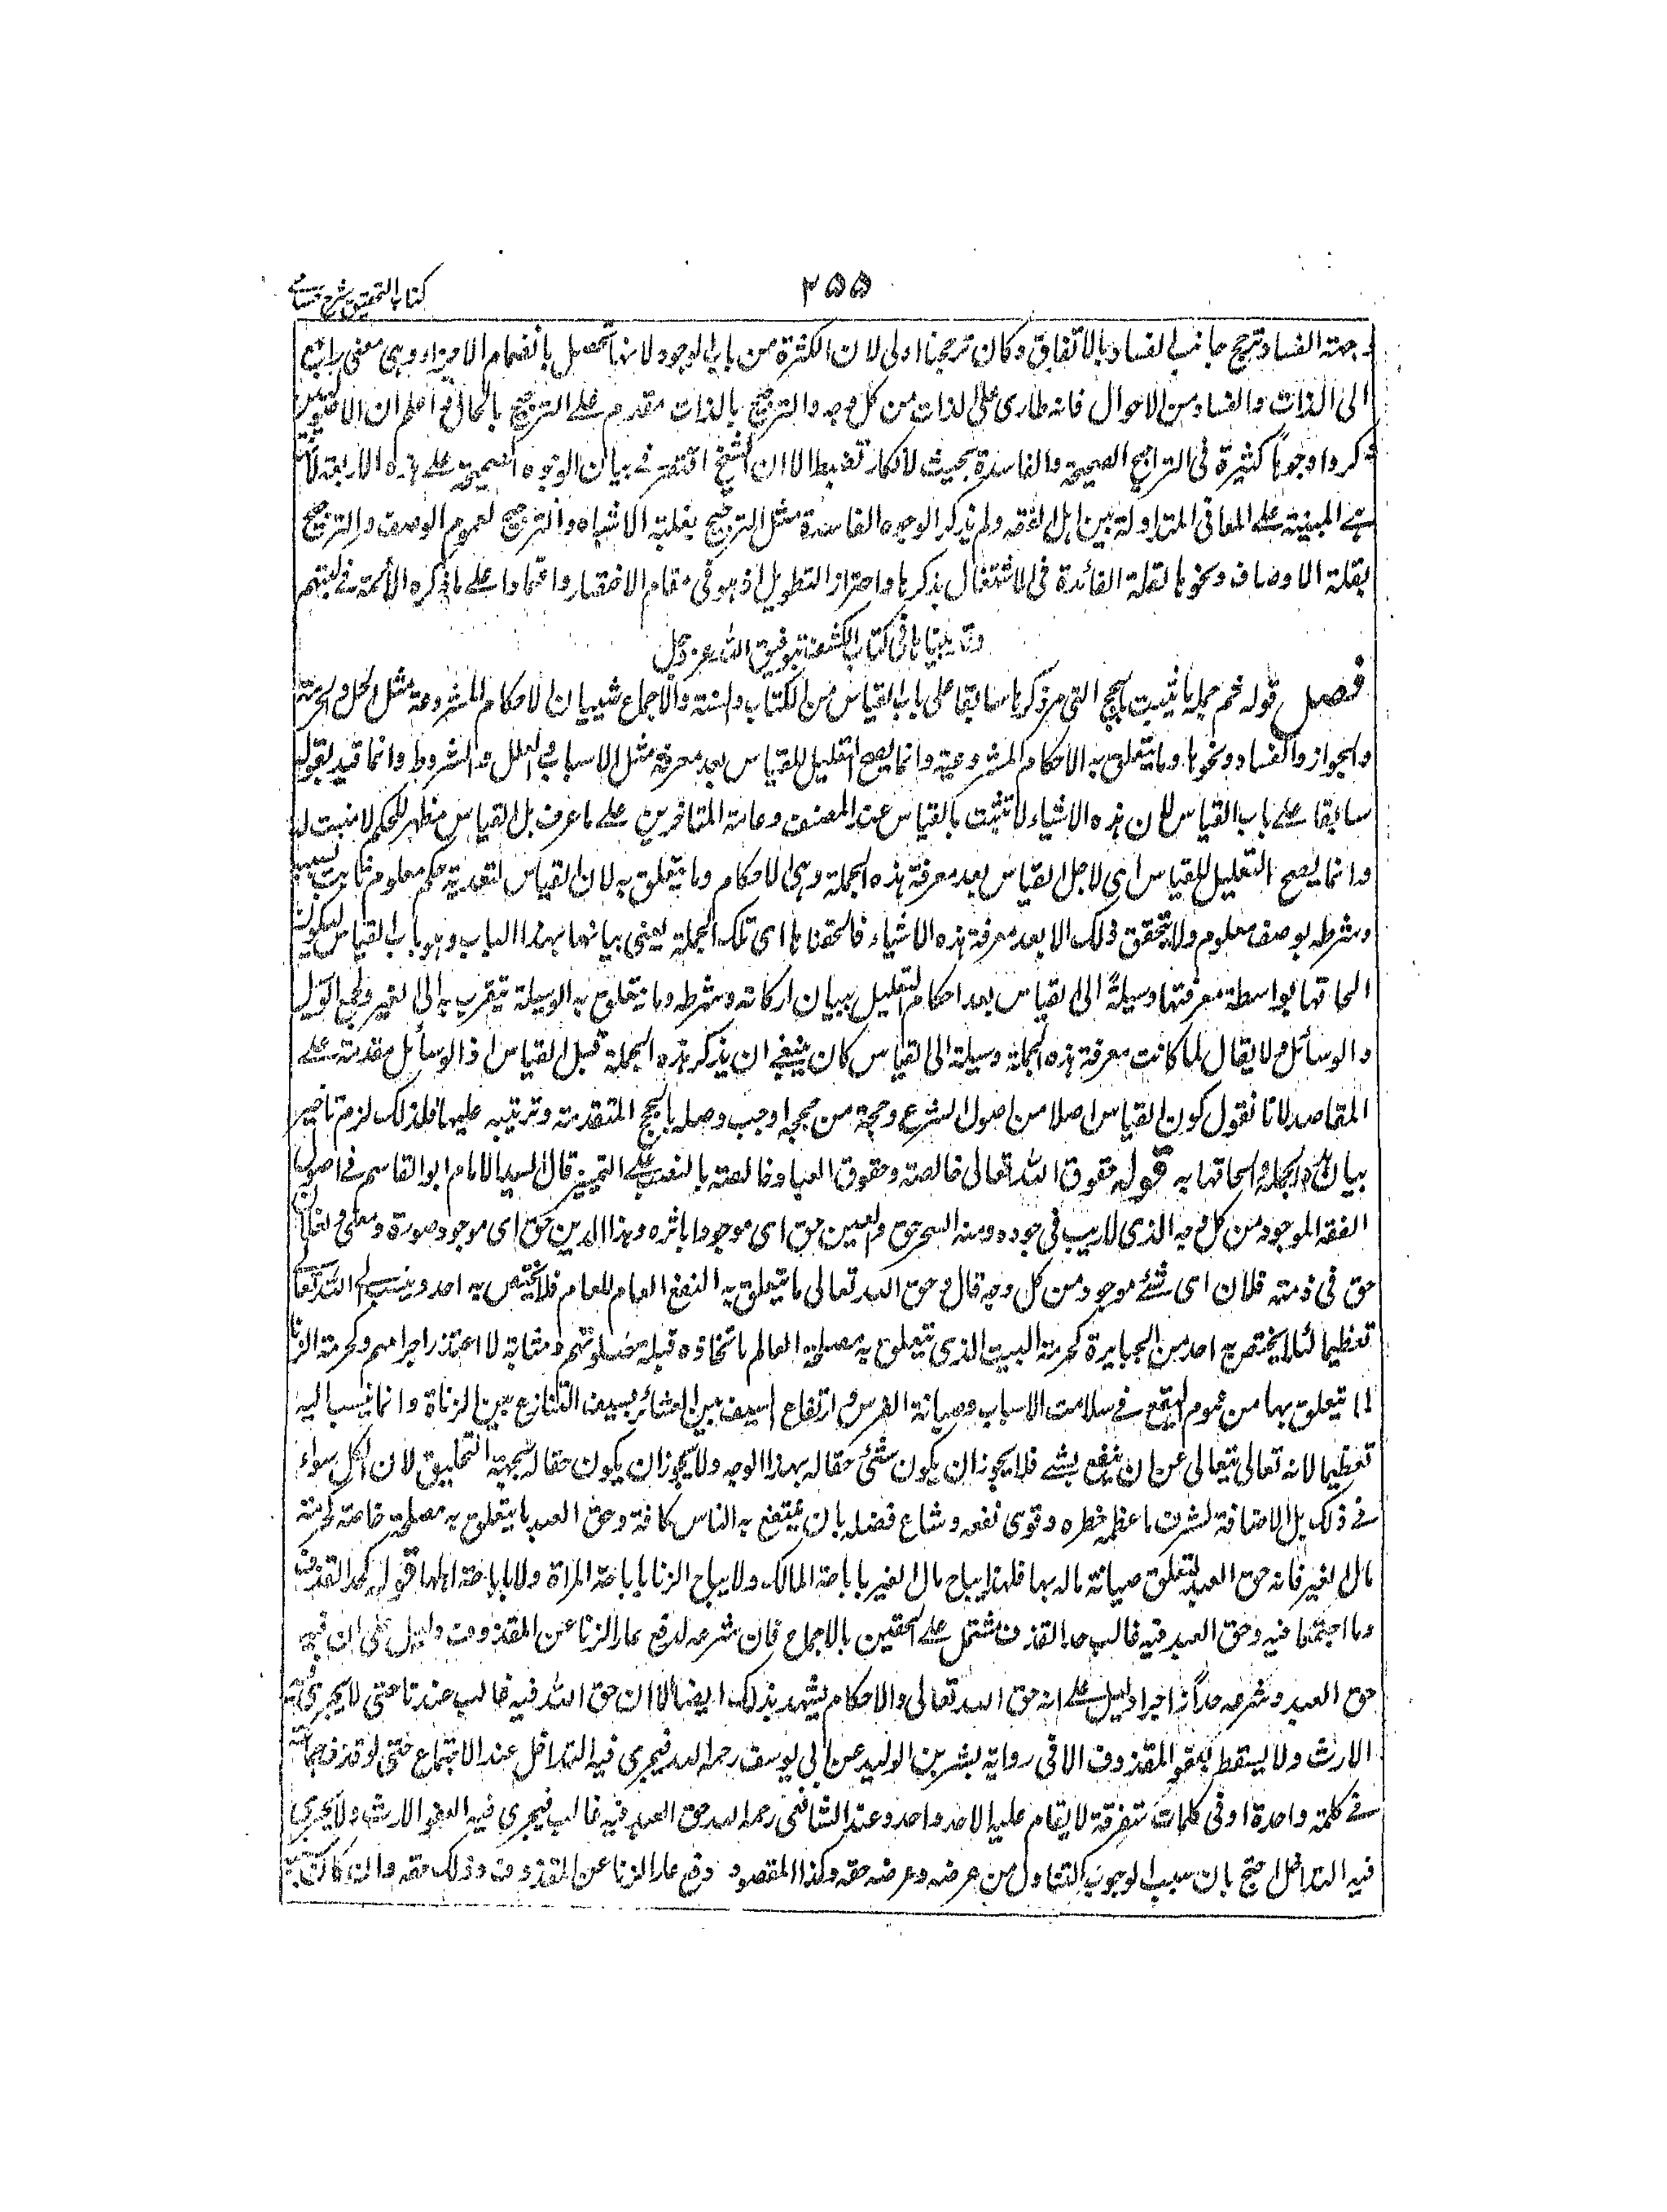 ٢٥٥
كتاب التحقيق شرح حسامى
وجهة الفساد ترجح جانب الفساد بالاتفاق وكان ترجيحنا اولى لان الكثرة من باب الوجود لانها تحصل بانضمام الاجزاء وهى معنى راجع
الى الذات والفساد من الاحوال فانه طارى على الذات من كل وجه والترجيح بالذات مقدم على الترجيح بالحال واعلم ان الاصوليين
ذكروا وجوها كثيرة فى التراجيح الصحيحة والفاسدة بحيث لا تكاد تضبط الا ان الشيخ اقتصر فى بيان الوجوه الصحيحة على هذه الاربعة لانها
هى المبنية على المعانى المتداولة بين اهل الفقه ولم يذكر الوجوه الفاسدة مثل الترجيح بغلبة الاشباه والترجيح لعموم الوصف والترجيح
بقلة الاوصاف ونحوها لقلة الفائدة فى الاشتغال بذكرها واحتراز التطويل اذ هو فى مقام الاختصار واعتمادا على ما ذكره الأئمة فى كتبهم
وقد بيناها فى كتاب الكشف بتوفيق الله عز وجل
فصل قوله ثم جملة ما يثبت بالحجج التى مر ذكرها سابقا على باب القياس من الكتاب والسنة والاجماع شيئان الاحكام المشروعة مثل الحل والحرمة
والجواز والفساد ونحوها. وما يتعلق به الاحكام المشروعة وانما يصح التعليل للقياس بعد معرفة مثل الاسباب والعلل والشروط وانما قيد بقوله
سابقا على باب القياس لان هذه الاشياء لا تثبت بالقياس عند المصنف وعامة المتاخرين على ما عرف بل القياس مظهر للحكم لا مثبت له
وانما يصح التعليل للقياس اى لاجل القياس بعد معرفة هذه الجملة وهى الاحكام وما يتعلق به لان القياس لتعدية حكم معلوم ثابت بسببه
وشرطه بوصف معلوم ولا يتحقق ذلك الا بعد معرفة هذه الاشياء فالحقناها اى تلك الجملة يعنى بيانها بهذا الباب وهو باب القياس ليكون
الحاقها بواسطة معرفتها وسيلة الى القياس بعد احكام التعليل ببيان اركانه وشرطه وما يتعلق به الوسيلة ما يتقرب به الى الغير والجمع الوسيل
والوسائل ولا يقال لما كانت معرفة هذه الجملة وسيلة الى القياس كان ينبغى ان يذكر هذه الجملة قبل القياس اذ الوسائل مقدمة على
المقاصد لانا نقول كون القياس اصلا من اصول الشرع وحجة من حججه اوجب وصله بالحجج المتقدمة وترتيبه عليها فلذلك لزم تاخير
بيان هذه الجملة والحاقها به قوله حقوق الله تعالى خالصة وحقوق العباد خالصة بالنصب على التمييز قال السيد الامام ابو القاسم فى اصول
الفقه الموجود من كل وجه الذى لا ريب فى وجوده ومنه السحر حق والعين حق اى موجود باثره وهذا الدين حق اى موجود صورة ومعنى ولفلان
حق فى ذمة فلان اى شئ موجود من كل وجه قال وحق الله تعالى ما يتعلق به النفع العام للعالم فلا يختص به احد وينسب الى الله تعالى
تعظيما لئلا يختص به احد من الجبابرة كحرمة البيت الذى يتعلق به مصلحة العالم باتخاذه قبلة لصلوتهم ومثابة لاعتذار اجرامهم وكحرمة الزنا
لما يتعلق بها من عموم النفع فى سلامت الانساب وصيانة الفرش وارتفاع السيف بين العشائر بسبب التنازع بين الزناة وانما ينسب اليه
تعظيما لانه تعالى يتعالى عن ان ينتفع بشئ فلا يجوز ان يكون شئ حقا له بهذا الوجه ولا يجوز ان يكون حقا له بجهة التخليق لان الكل سواء
فى ذلك بل الاضافة لتشريف ما عظم خطره وقوى نفعه وشاع فضله بان ينتفع به الناس كافة وحق العبد ما يتعلق به مصلحة خاصة كحرمة
مال الغير فانه حق العبد ليتعلق صيانة ماله بها فلهذا يباح مال الغير باباحة المالك ولا يباح الزنا باباحة المراة ولا باباحة اهلها قوله كحد القذف
وما اجتمعا فيه وحق العبد فيه غالب حد القذف مشتمل على الحقين بالاجماع فان شرعه لدفع عار الزنا عن المقذوف دليل على ان فيه
حق العبد وشرعه حدا زاجرا دليل على انه حق الله تعالى والاحكام يشهد بذلك ايضا الا ان حق الله فيه غالب عندنا حتى لا يجرى فيه
الارث ولا يسقط بعفو المقذوف الا فى رواية بشر بن الوليد عن ابى يوسف رحمه الله فيجرى فيه التداخل عند الاجتماع حتى لو قذف جماعة
فى كلمة واحدة او فى كلمات متفرقة لا يقام عليه الا حد واحد وعند الشافعى رحمه الله حق العبد فيه غالب فيجرى فيه العفو والارث ولا يجرى
فيه التداخل احتج بان سبب الوجوب التناول من عرضه وعرضه حقه وكذا المقصود دفع عار الزنا عن المقذوف وذلك حقه وان كان